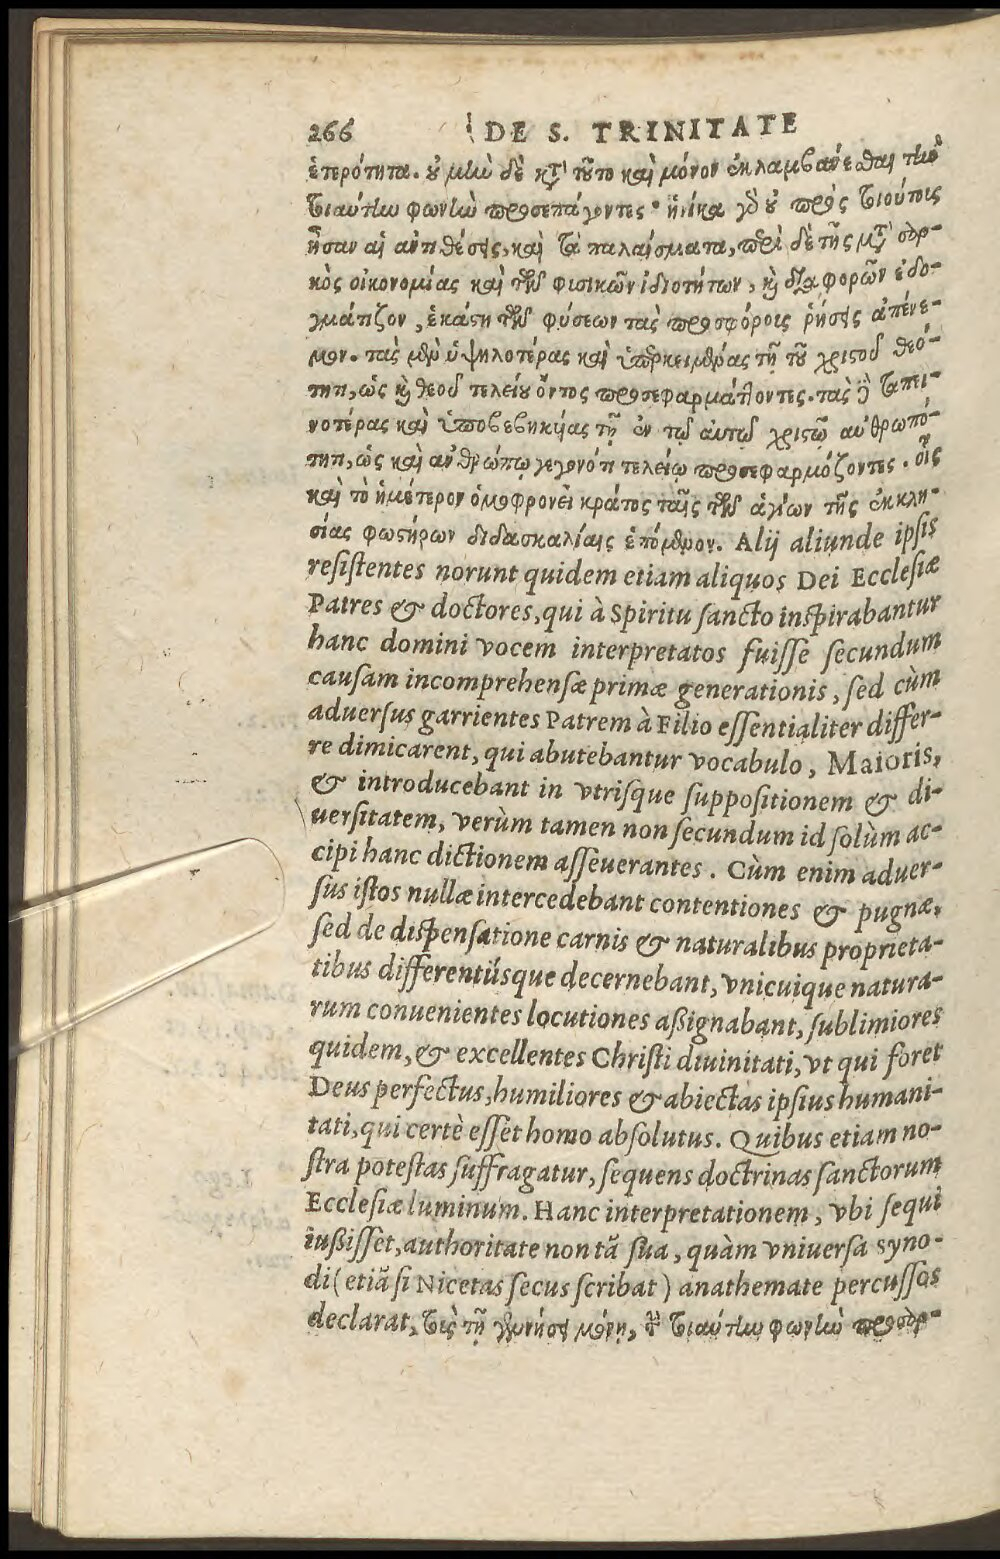 266 DE S. TRINITATE
ἑτερότητα. οὐ μὴν δὲ κατὰ τοῦτο καὶ μόνον ἐκλαμβάνεσθαι τὴν
τιαύτην φωνὴν προσεπάγοντες· ἡνίκα γὰρ οὐ πρὸς τιούτοις
ἦσαν αἱ ἀντιθέσεις, καὶ τὰ παλαίσματα, περὶ δὲ τῆς μετὰ σαρ-
κὸς οἰκονομίας καὶ τῶν φισικῶν ἰδιοτήτων, καὶ διαφορῶν ἐδο-
γμάτιζον, ἑκάστη τῶν φύσεων τὰς προσφόροις ῥήσεις ἀπένε-
μον. τὰς μὲν ὑψηλοτέρας καὶ ὑπερκειμένας τῇ τοῦ χριστοῦ θεό-
τητι, ὡς καὶ θεοῦ τελείου ὄντος προσεφαρμάττοντες. τὰς δὲ ταπει-
νοτέρας καὶ ὑποβεβηκυίας τῇ ἐν τῷ αὐτῷ χριστῷ ἀνθρωπό-
τητι, ὡς καὶ ἀνθρώπῳ γεγονότι τελείῳ προσεφαρμόζοντες. οἷς
καὶ τὸ ἡμέτερον ὁμοφρονεῖ κράτος ταῖς τῶν ἁγίων τῆς ἐκκλη-
σίας φωστήρων διδασκαλίαις ἑπόμενον. Alij aliunde ipsis
resistentes norunt quidem etiam aliquos Dei Ecclesiæ
Patres & doctores, qui à Spiritu sancto inspirabantur
hanc domini vocem interpretatos fuisse secundum
causam incomprehensæ primæ generationis, sed cùm
aduersus garrientes Patrem à Filio essentialiter differ-
re dimicarent, qui abutebantur vocabulo, Maioris,
& introducebant in vtrisque suppositionem & di-
uersitatem, verùm tamen non secundum id solùm ac-
cipi hanc dictionem asseuerantes. Cùm enim aduer-
sus istos nullæ intercedebant contentiones & pugnæ,
sed de dispensatione carnis & naturalibus proprieta-
tibus differentiisque decernebant, vnicuique natura-
rum conuenientes locutiones aßignabant, sublimiores
quidem, & excellentes Christi diuinitati, vt qui foret
Deus perfectus, humiliores & abiectas ipsius humani-
tati, qui certè esset homo absolutus. Quibus etiam no-
stra potestas suffragatur, sequens doctrinas sanctorum
Ecclesiæ luminum. Hanc interpretationem, vbi sequi
iußisset, authoritate non tã sua, quàm vniuersa syno-
di (etiã si Nicetas secus scribat) anathemate percussos
declarat, τὶς τῇ γεννήσει μόνῃ, τιαύτην φωνὴν προσαρ-